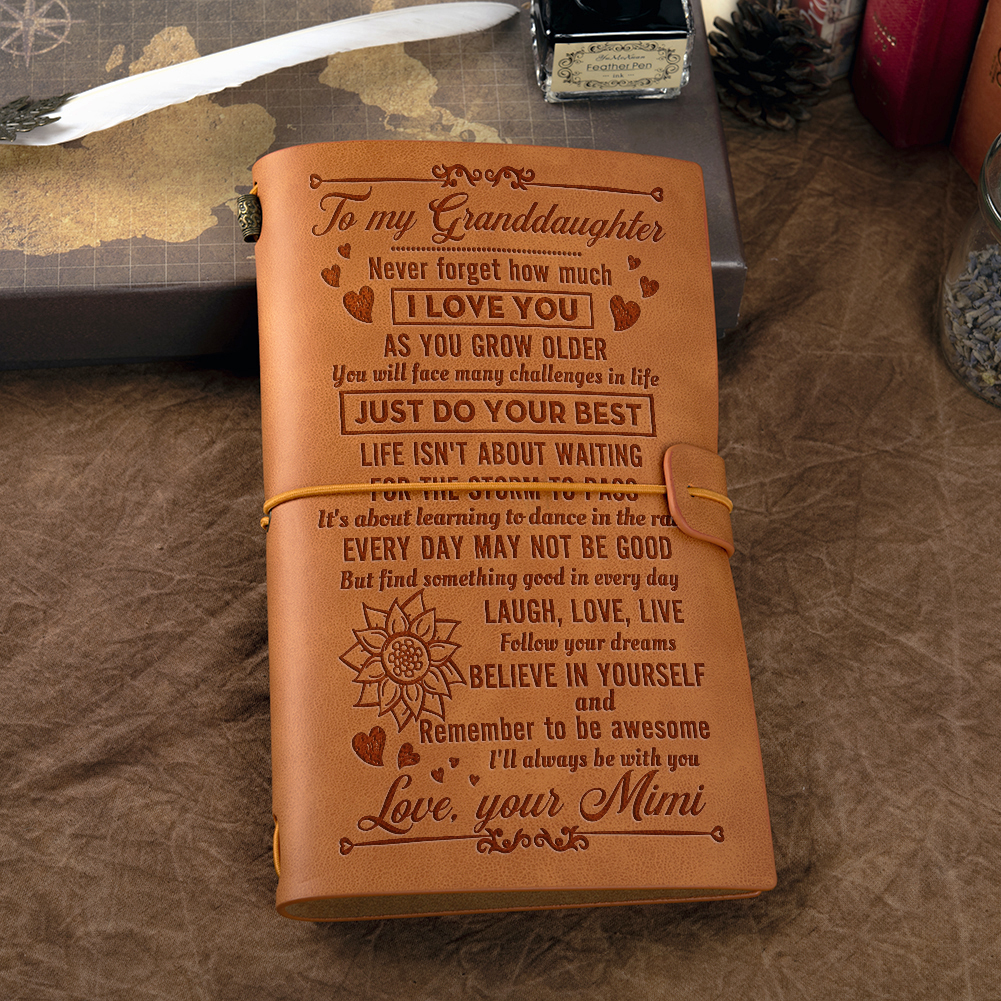 YouMeNova
Feather Pen
ink
To my Granddaughter
Never forget how much
I LOVE YOU
AS YOU GROW OLDER
You will face many challenges in life
JUST DO YOUR BEST
LIFE ISN'T ABOUT WAITING
FOR THE STORM TO PASS
It's about learning to dance in the
EVERY DAY MAY NOT BE GOOD
But find something good in every day
LAUGH, LOVE, LIVE
Follow your dreams
BELIEVE IN YOURSELF
and
Remember to be awesome
I'll always be with you
Love, your Mimi